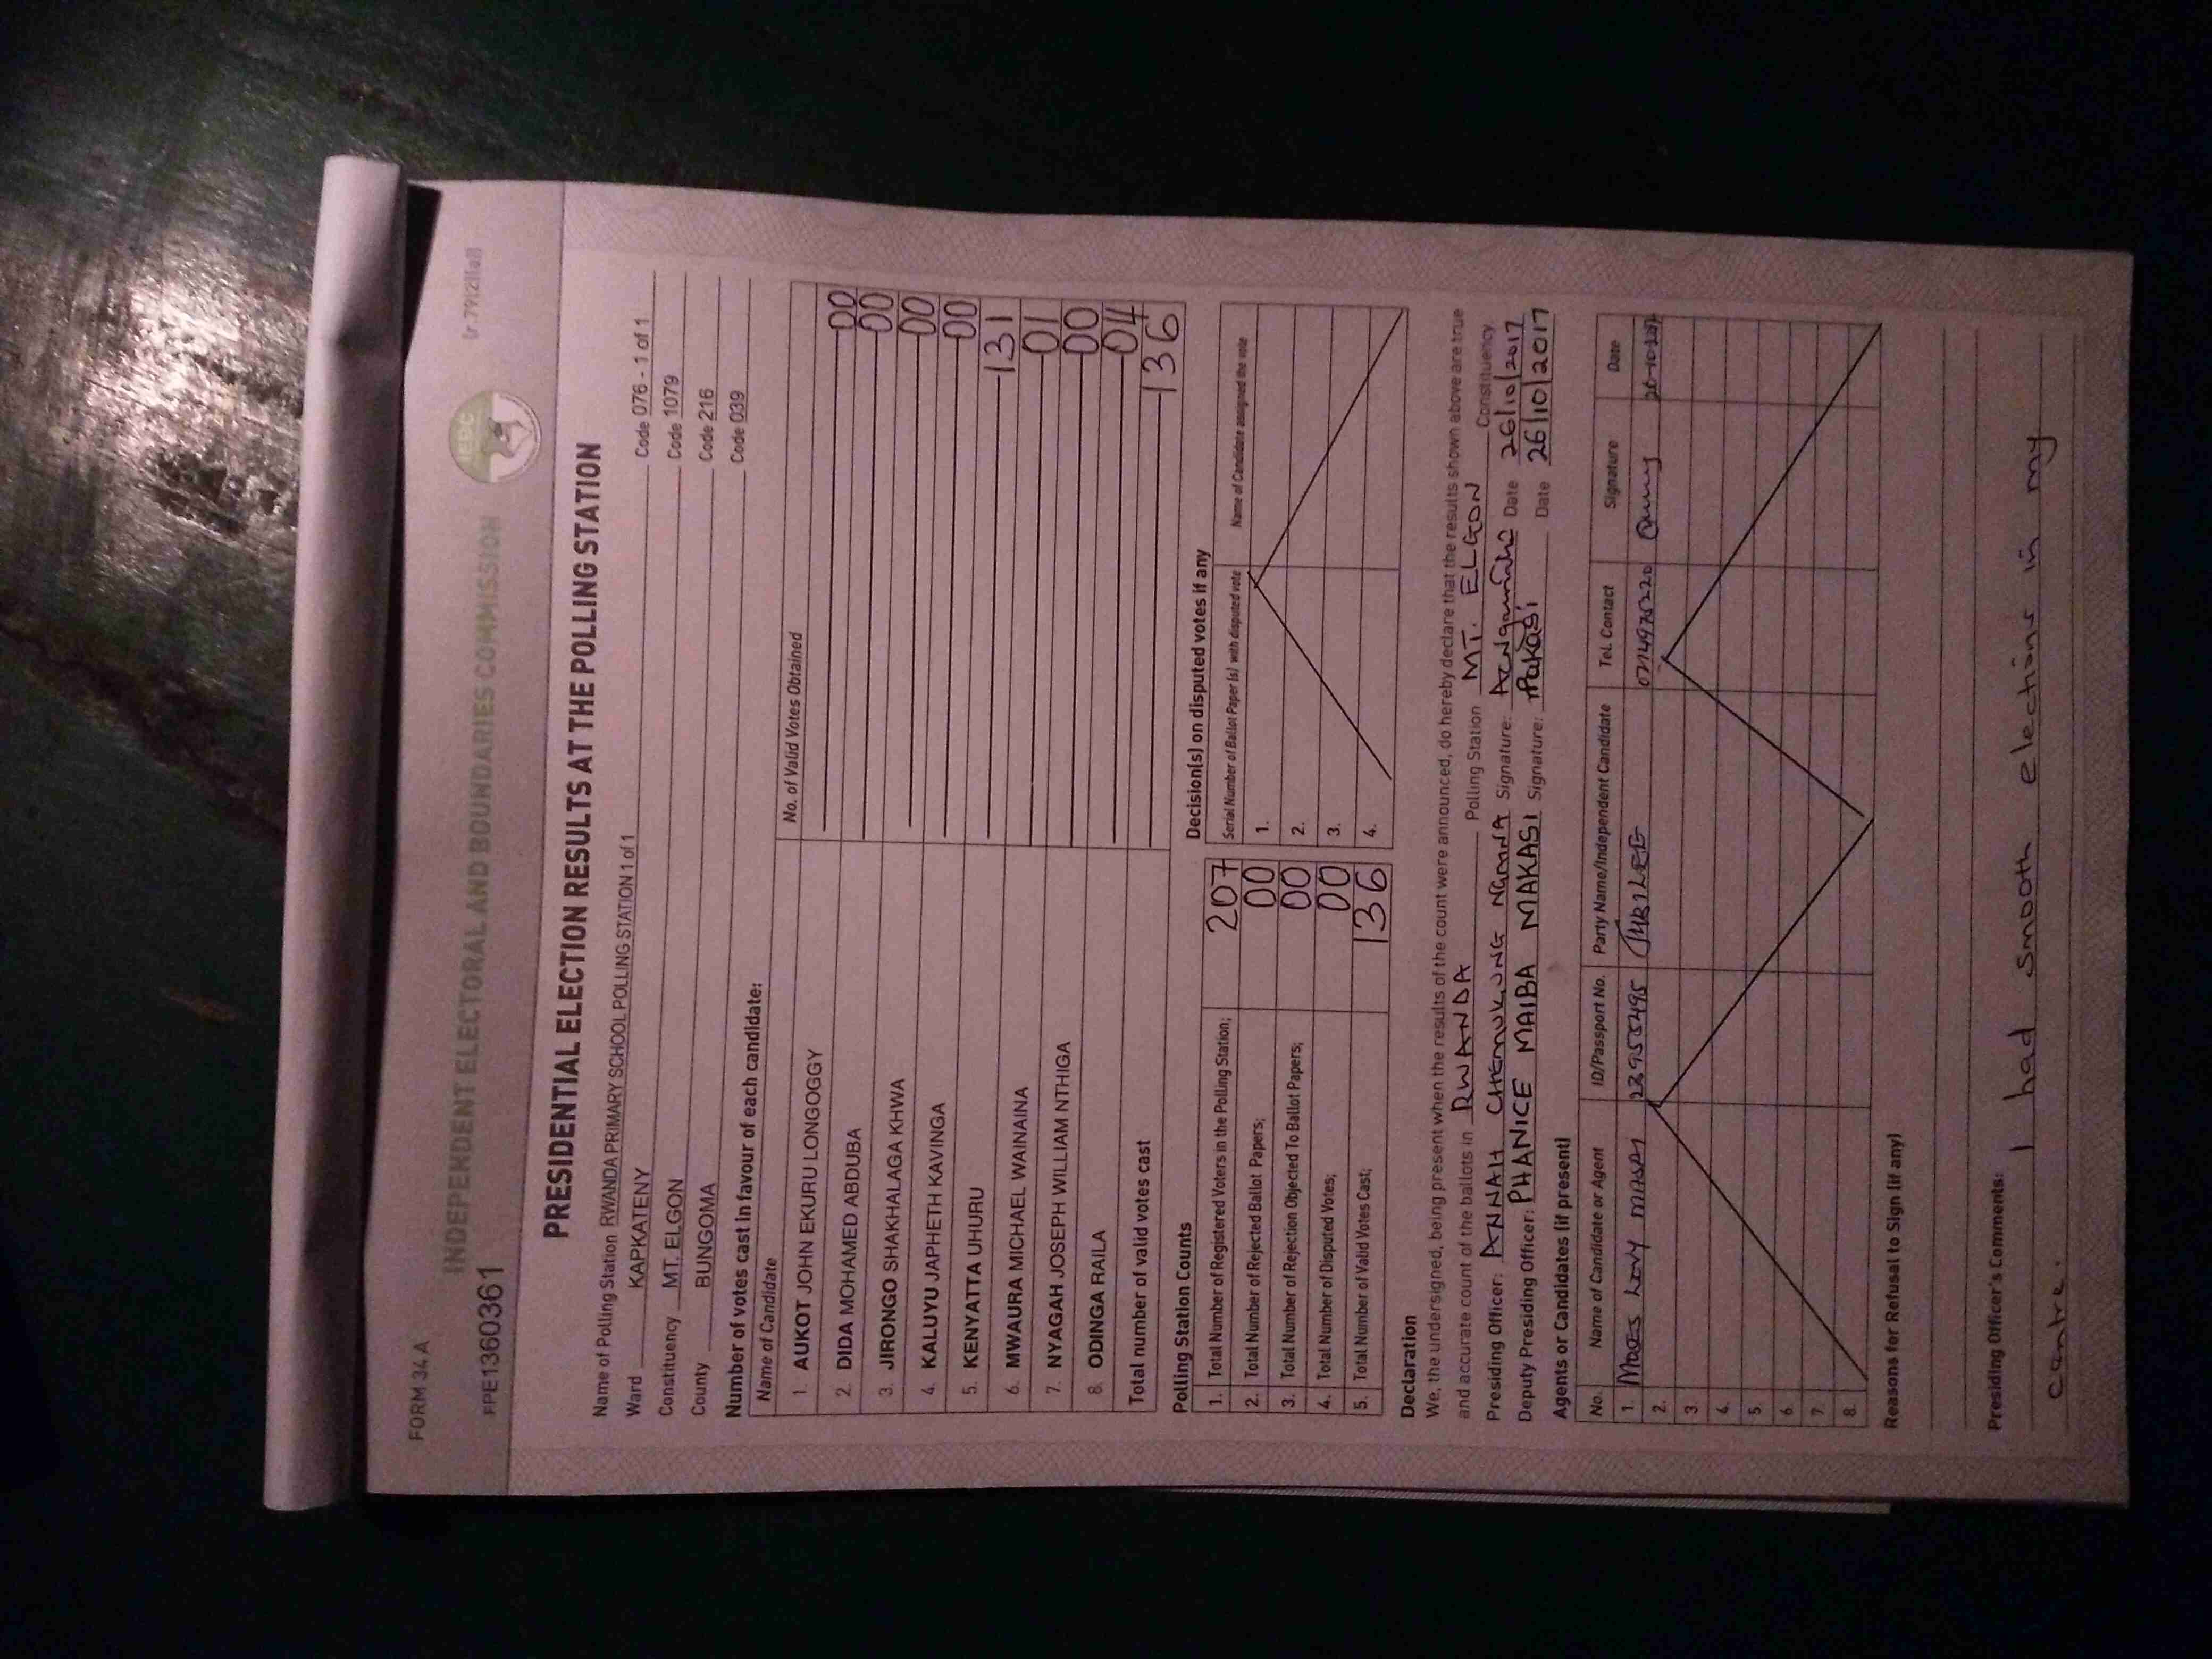 FORM 34 A
(r.79(2)(a))
INDEPENDENT ELECTORAL AND BOUNDARIES COMMISSION
IEBC
PPE1360361
PRESIDENTIAL ELECTION RESULTS AT THE POLLING STATION
Name of Polling Station RWANDA PRIMARY SCHOOL POLLING STATION 1 of 1 Code 076 - 1 of 1
Ward KAPKATENY Code 1079
Constituency MT. ELGON Code 216
County BUNGOMA Code 039
Number of votes cast in favour of each candidate:
Name of Candidate No. of Valid Votes Obtained
1. AUKOT JOHN EKURU LONGOGGY 00
2. DIDA MOHAMED ABDUBA 00
3. JIRONGO SHAKHALAGA KHWA 00
4. KALUYU JAPHETH KAVINGA 00
5. KENYATTA UHURU 131
6. MWAURA MICHAEL WAINAINA 01
7. NYAGAH JOSEPH WILLIAM NTHIGA 00
8. ODINGA RAILA 04
Total number of valid votes cast 136
Polling Station Counts
1. Total Number of Registered Voters in the Polling Station; 207
2. Total Number of Rejected Ballot Papers; 00
3. Total Number of Rejection Objected To Ballot Papers; 00
4. Total Number of Disputed Votes; 00
5. Total Number of Valid Votes Cast; 136
Decision(s) on disputed votes if any
Serial Number of Ballot Paper (s) with disputed vote Name of Candidate assigned the vote
1.
2.
3.
4.
Declaration
We, the undersigned, being present when the results of the count were announced, do hereby declare that the results shown above are true
and accurate count of the ballots in RWANDA Polling Station MT. ELGON Constituency.
Presiding Officer: ANNAH CHEMUKUNG Signature: Date 26/10/2017
Deputy Presiding Officer: PHANICE MAIBA MAKASI Signature: Makasi Date 26/10/2017
Agents or Candidates (if present)
No. Name of Candidate or Agent ID/Passport No. Party Name/Independent Candidate Tel. Contact Signature Date
1. MOSES LOVY MASAI JUBILEE 26-10-2017
2.
3.
4.
5.
6.
7.
8.
Reasons for Refusal to Sign (if any)
Presiding Officer's Comments: I had smooth elections in my
centre.